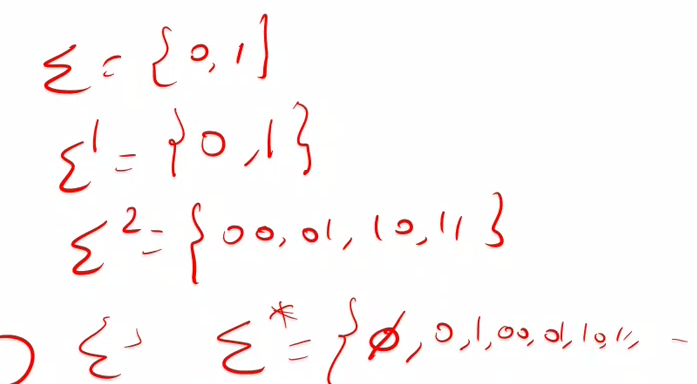 Σ = {0, 1}
Σ¹ = {0, 1}
Σ² = {00, 01, 10, 11}
Σ, Σ* = {ϕ, 0, 1, 00, 01, 10, 11, -